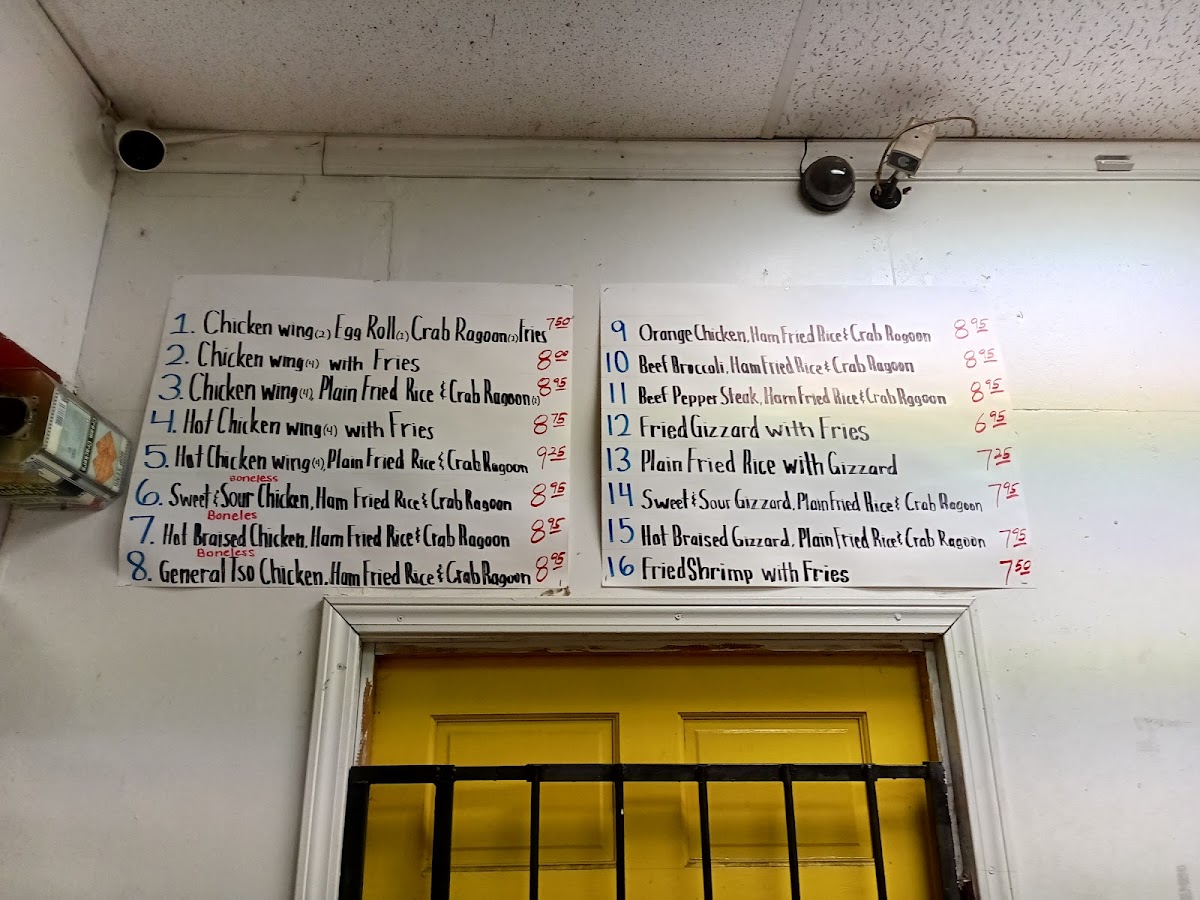 1. Chicken wing(2) Egg Roll(2) Crab Ragoon(2) Fries 7.50
2. Chicken wing(4) with Fries 8.00
3. Chicken wing(4), Plain Fried Rice & Crab Ragoon 8.95
4. Hot Chicken wing(4) with Fries 8.75
5. Hot Chicken wing(4), Plain Fried Rice & Crab Ragoon 9.25
Boneless
6. Sweet & Sour Chicken, Ham Fried Rice & Crab Ragoon 8.95
Boneles
7. Hot Braised Chicken, Ham Fried Rice & Crab Ragoon 8.95
Boneless
8. General Tso Chicken. Ham Fried Rice & Crab Ragoon 8.95
9 Orange Chicken, Ham Fried Rice & Crab Ragoon 8.95
10 Beef Broccoli, Ham Fried Rice & Crab Ragoon 8.95
11 Beef Pepper Steak, Ham Fried Rice & Crab Ragoon 8.95
12 Fried Gizzard with Fries 6.95
13 Plain Fried Rice with Gizzard 7.25
14 Sweet & Sour Gizzard, Plain Fried Rice & Crab Ragoon 7.95
15 Hot Braised Gizzard, Plain Fried Rice & Crab Ragoon 7.95
16 Fried Shrimp with Fries 7.50